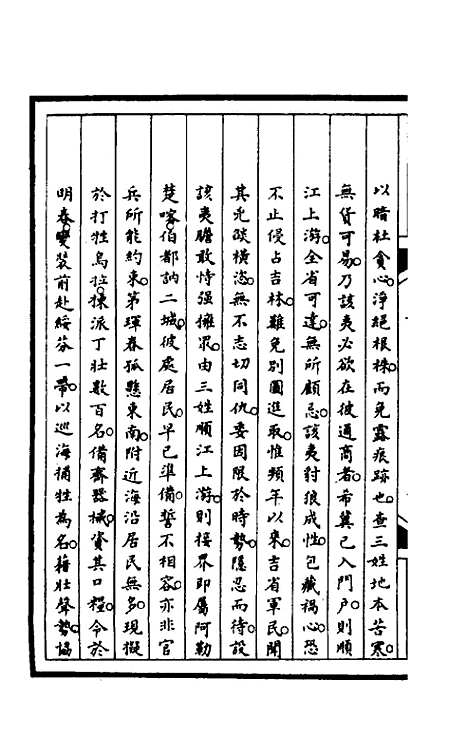 以暗杜貪心淨絕根株而免露痕跡也查三姓地本苦寒
無貨可易乃該夷必欲在彼通商者希冀已入門户則順
江上游全省可達無所顧忌該夷豺狼成性包藏禍心恐
不止侵占吉林難免別圖進取惟頻年以來吉省軍民聞
其光燄橫恣無不志切同仇委因限於時勢隱忍而待設
該夷膽敢恃强擁眾由三姓順江上游則接界即屬阿勒
楚喀伯都訥二城彼處居民早已準備誓不相容亦非官
兵所能約束第琿春孤懸東南附近海沿居民無多現擬
於打牲烏拉揀派丁壯數百名備齊器械資其口糧令於
明春雙裝前赴綏芬一帶以巡海捕牲為名藉壯聲勢協